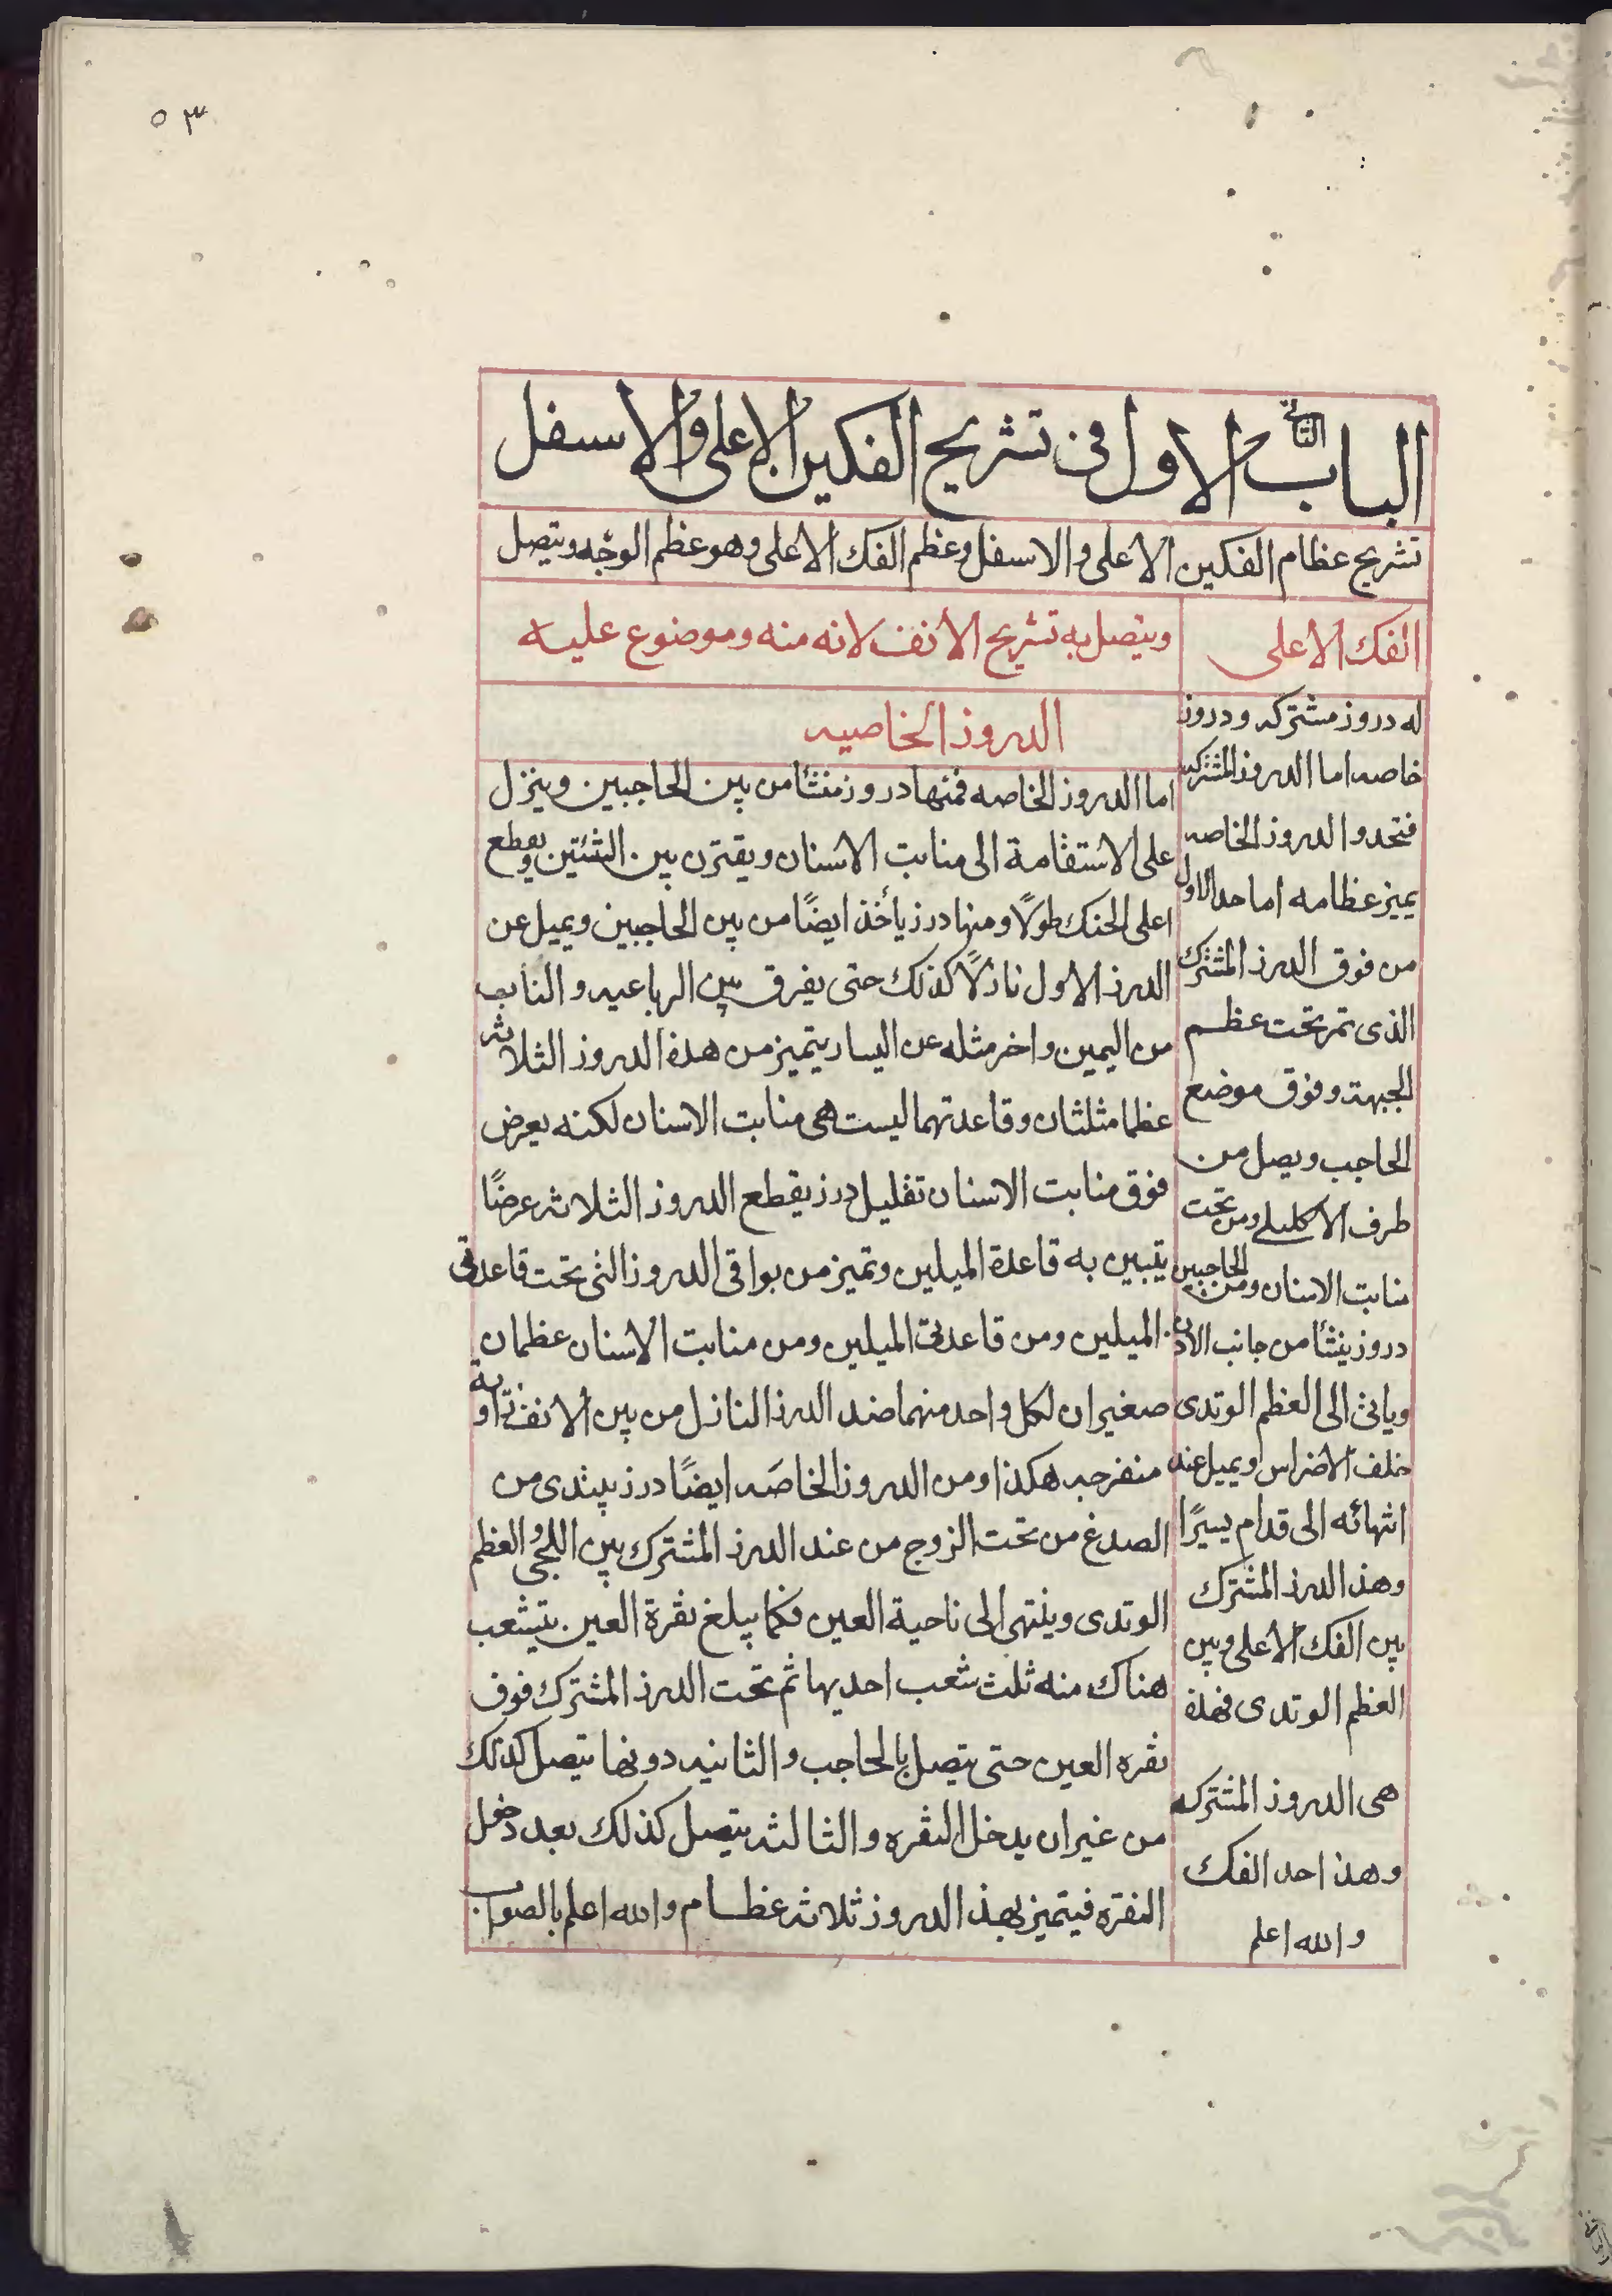 ٥٣
الباب الثانى الاول فى تشريح الفكين الاعلى والاسفل
تشريح عظام الفكين الاعلى والاسفل وعظم الفك الاعلى وهو عظم الوجه ويتصل
الفك الاعلى
ويتصل به تشريح الانف لانه منه وموضوع عليه
له دروز مشتركه ودروز
خاصه اما الدروز المشتركه
فتحدوا لدروز الخاصه
يميز عظامه اما حد الاول
من فوق الدرز المشترك
الذى تمر تحت عظم
الجبهة وفوق موضع
الحاجب ويصل من
طرف الاكليلى ومن تحت
منابت الاسنان ومن الحاجبين
دروز ينشأ من جانب الاذن
وياتى الى العظم الوتدى
خلف الاضراس ويميل عند
انتهائه الى قدام يسيرًا
وهذا الدرز المشترك
بين الفك الاعلى وبين
العظم الوتدى فهذه
هى الدروز المشتركه
وهذا احد الفك
والله اعلم
الدروز الخاصيه
اما الدروز الخاصه فمنها دروز منشأ من بين الحاجبين وينزل
على الاستقامة الى منابت الاسنان ويقترن بين الثنتين ويقطع
اعلى الحنك طولًا ومنها درز يأخذ ايضًا من بين الحاجبين ويميل عن
الدرز الاول نازلًا كذلك حتى يفرق بين الرباعيه والناب
من اليمين واخر مثله عن اليسار يتميز من هذه الدروز الثلاثه
عظما مثلثان وقاعدتهما ليست هى منابت الاسنان لكنه يعرض
فوق منابت الاسنان تقليل درز يقطع الدروز الثلاثه عرضًا
يتبين به قاعدة الميلين وتميز من بواقى الدروز التى تحت قاعدتى
الميلين ومن قاعدتى الميلين ومن منابت الاسنان عظمان
صغيران لكل واحد منهما ضد الدرز النازل من بين الانف زاويه
منفرجه هكذا ومن الدروز الخاصَه ايضًا درز يبتدى من
الصدغ من تحت الزوج من عند الدرز المشترك بين اللحى والعظم
الوتدى وينتهى الى ناحية العين فكما يبلغ نقرة العين يتشعب
هناك منه ثلث شعب احديها ثم تحت الدرز المشترك فوق
نقره العين حتى يتصل بالحاجب والثانيه دونها يتصل كذلك
من غير ان يدخل النقره والثالثه يتصل كذلك بعد دخل
النقره فيتميز بهذ الدروز ثلاثه عظام والله اعلم بالصواب